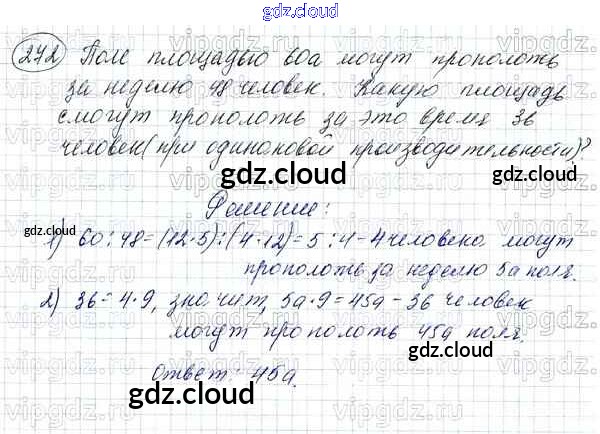 gdz.cloud
272 Поле площадью 60а могут прополоть
за неделю 48 человек. Какую площадь
смогут прополоть за это время 36
человек (при одинаковой производительности)?
gdz.cloud
Решение:
gdz.cloud
1) 60:48=(12·5):(4·12)=5:4-4 человека могут
прополоть за неделю 5а поля.
gdz.cloud
2) 36=4·9, значит, 5а·9=45а-36 человек
могут прополоть 45а поля.
gdz.cloud
gdz.cloud
Ответ: 45а.
gdz.cloud